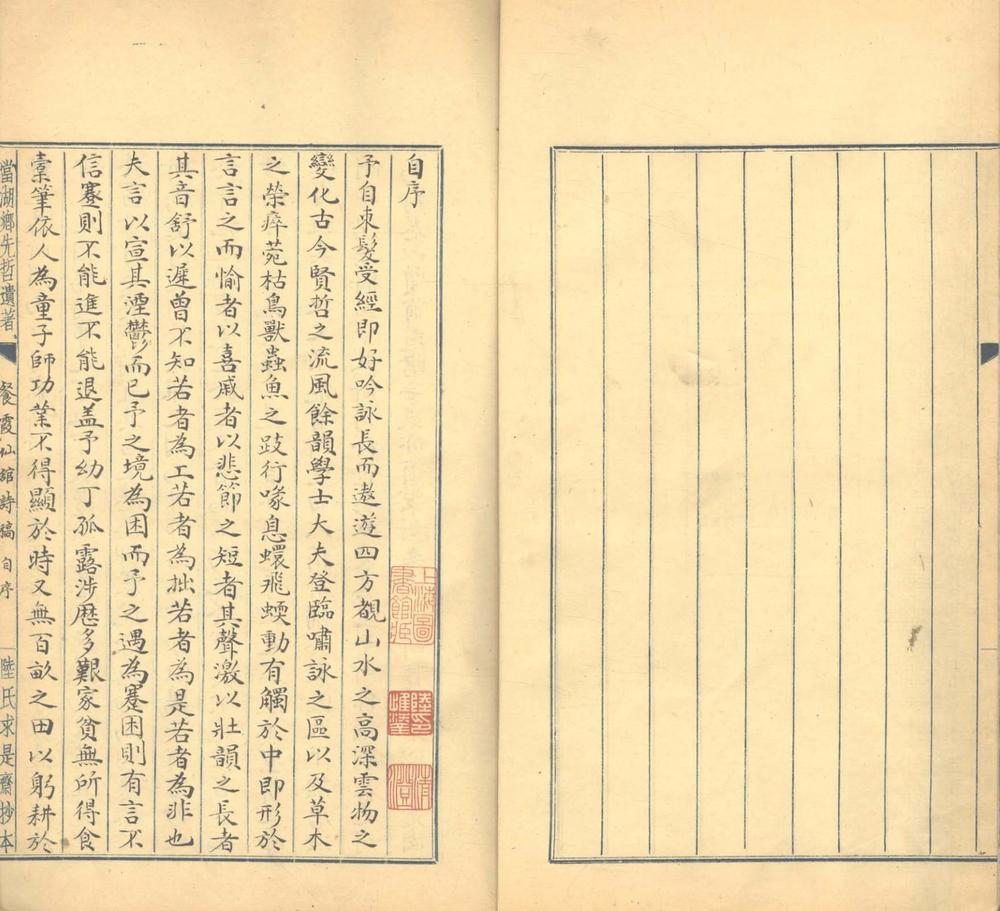 自序
予自束髮受經即好吟詠長而遨遊四方覩山水之高深雲物之
變化古今賢哲之流風餘韻學士大夫登臨嘯詠之區以及草木
之榮瘁菀枯鳥獸蟲魚之跂行喙息蠉飛蝡動有觸於中即形於
言言之而愉者以喜戚者以悲節之短者其聲激以壯韻之長者
其音舒以遲曾不知若者為工若者為拙若者為是若者為非也
夫言以宣其湮鬱而已予之境為困而予之遇為蹇困則有言不
信蹇則不能進不能退盖予幼丁孤露涉歷多艱家貧無所得食
槖筆依人為童子師功業不得顯於時又無百畝之田以躬耕於
當湖鄉先哲遺著
餐霞仙館詩稿 自序
陸氏求是齋抄本
上海圖書館藏
陸維鎏印
清澄